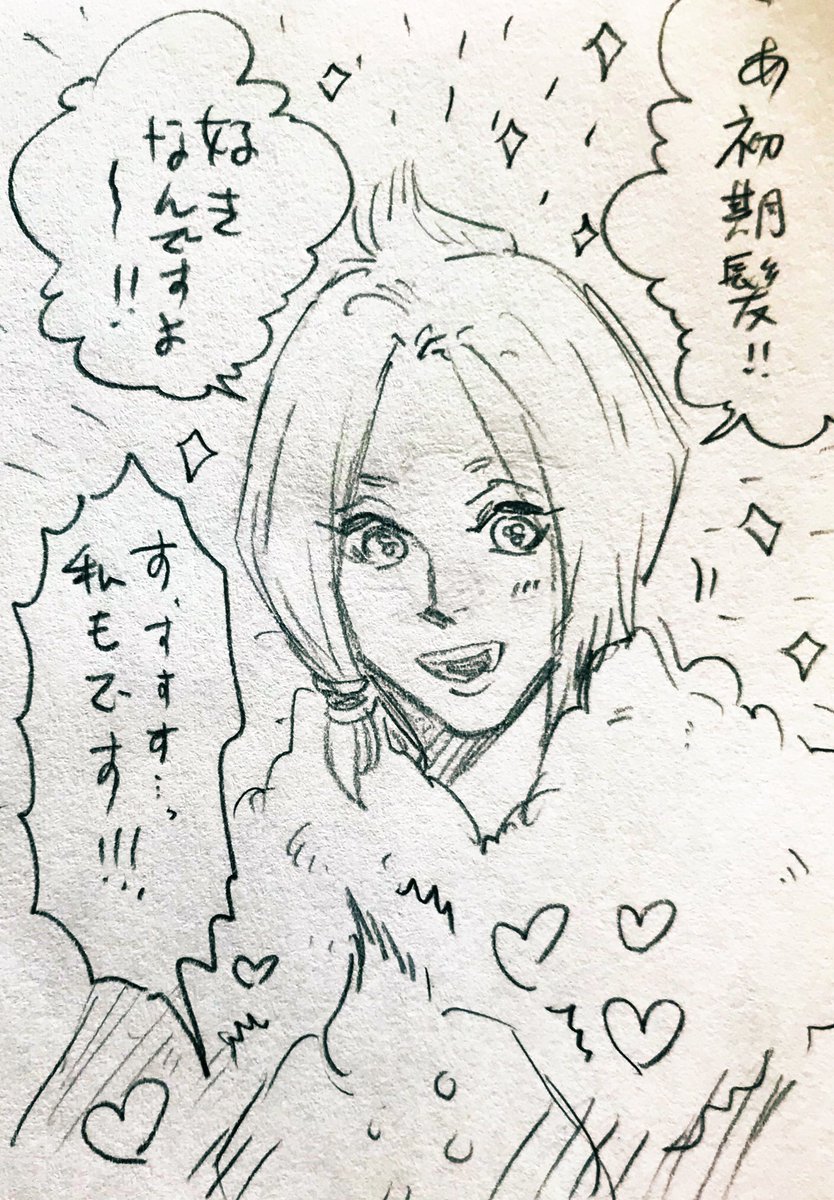 あ初期髪!!
好き
なんですよ
〜!!
す、すすす…っ
私もです!!!